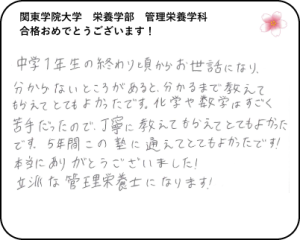 関東学院大学　栄養学部　管理栄養学科
合格おめでとうございます！
中学1年生の終わり頃からお世話になり、
分からないところがあると、分かるまで教えて
もらえてとてもよかったです。化学や数学はすごく
苦手だったので、丁寧に教えてもらえてとてもよかった
です。5年間この塾に通えてとてもよかったです!
本当にありがとうございました!
立派な管理栄養士になります!